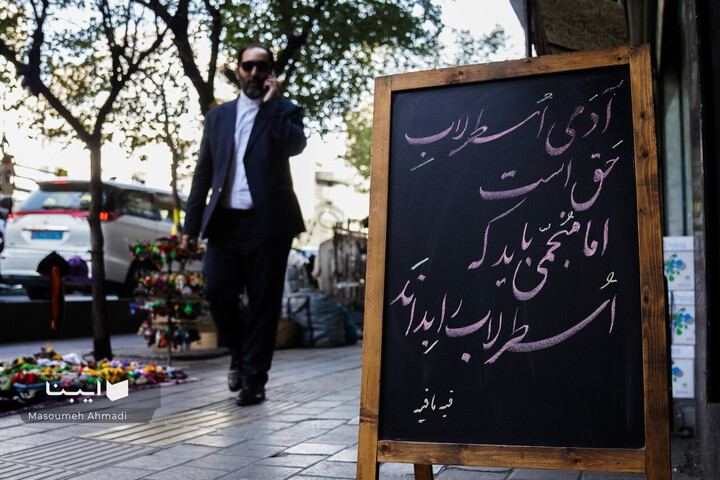 آدمی اُسطرلاب
حَق است
اما مُنجّمی باید که
اُسطرلاب را بداند
فیه مافیه
ایبنا
Masoumeh Ahmadi